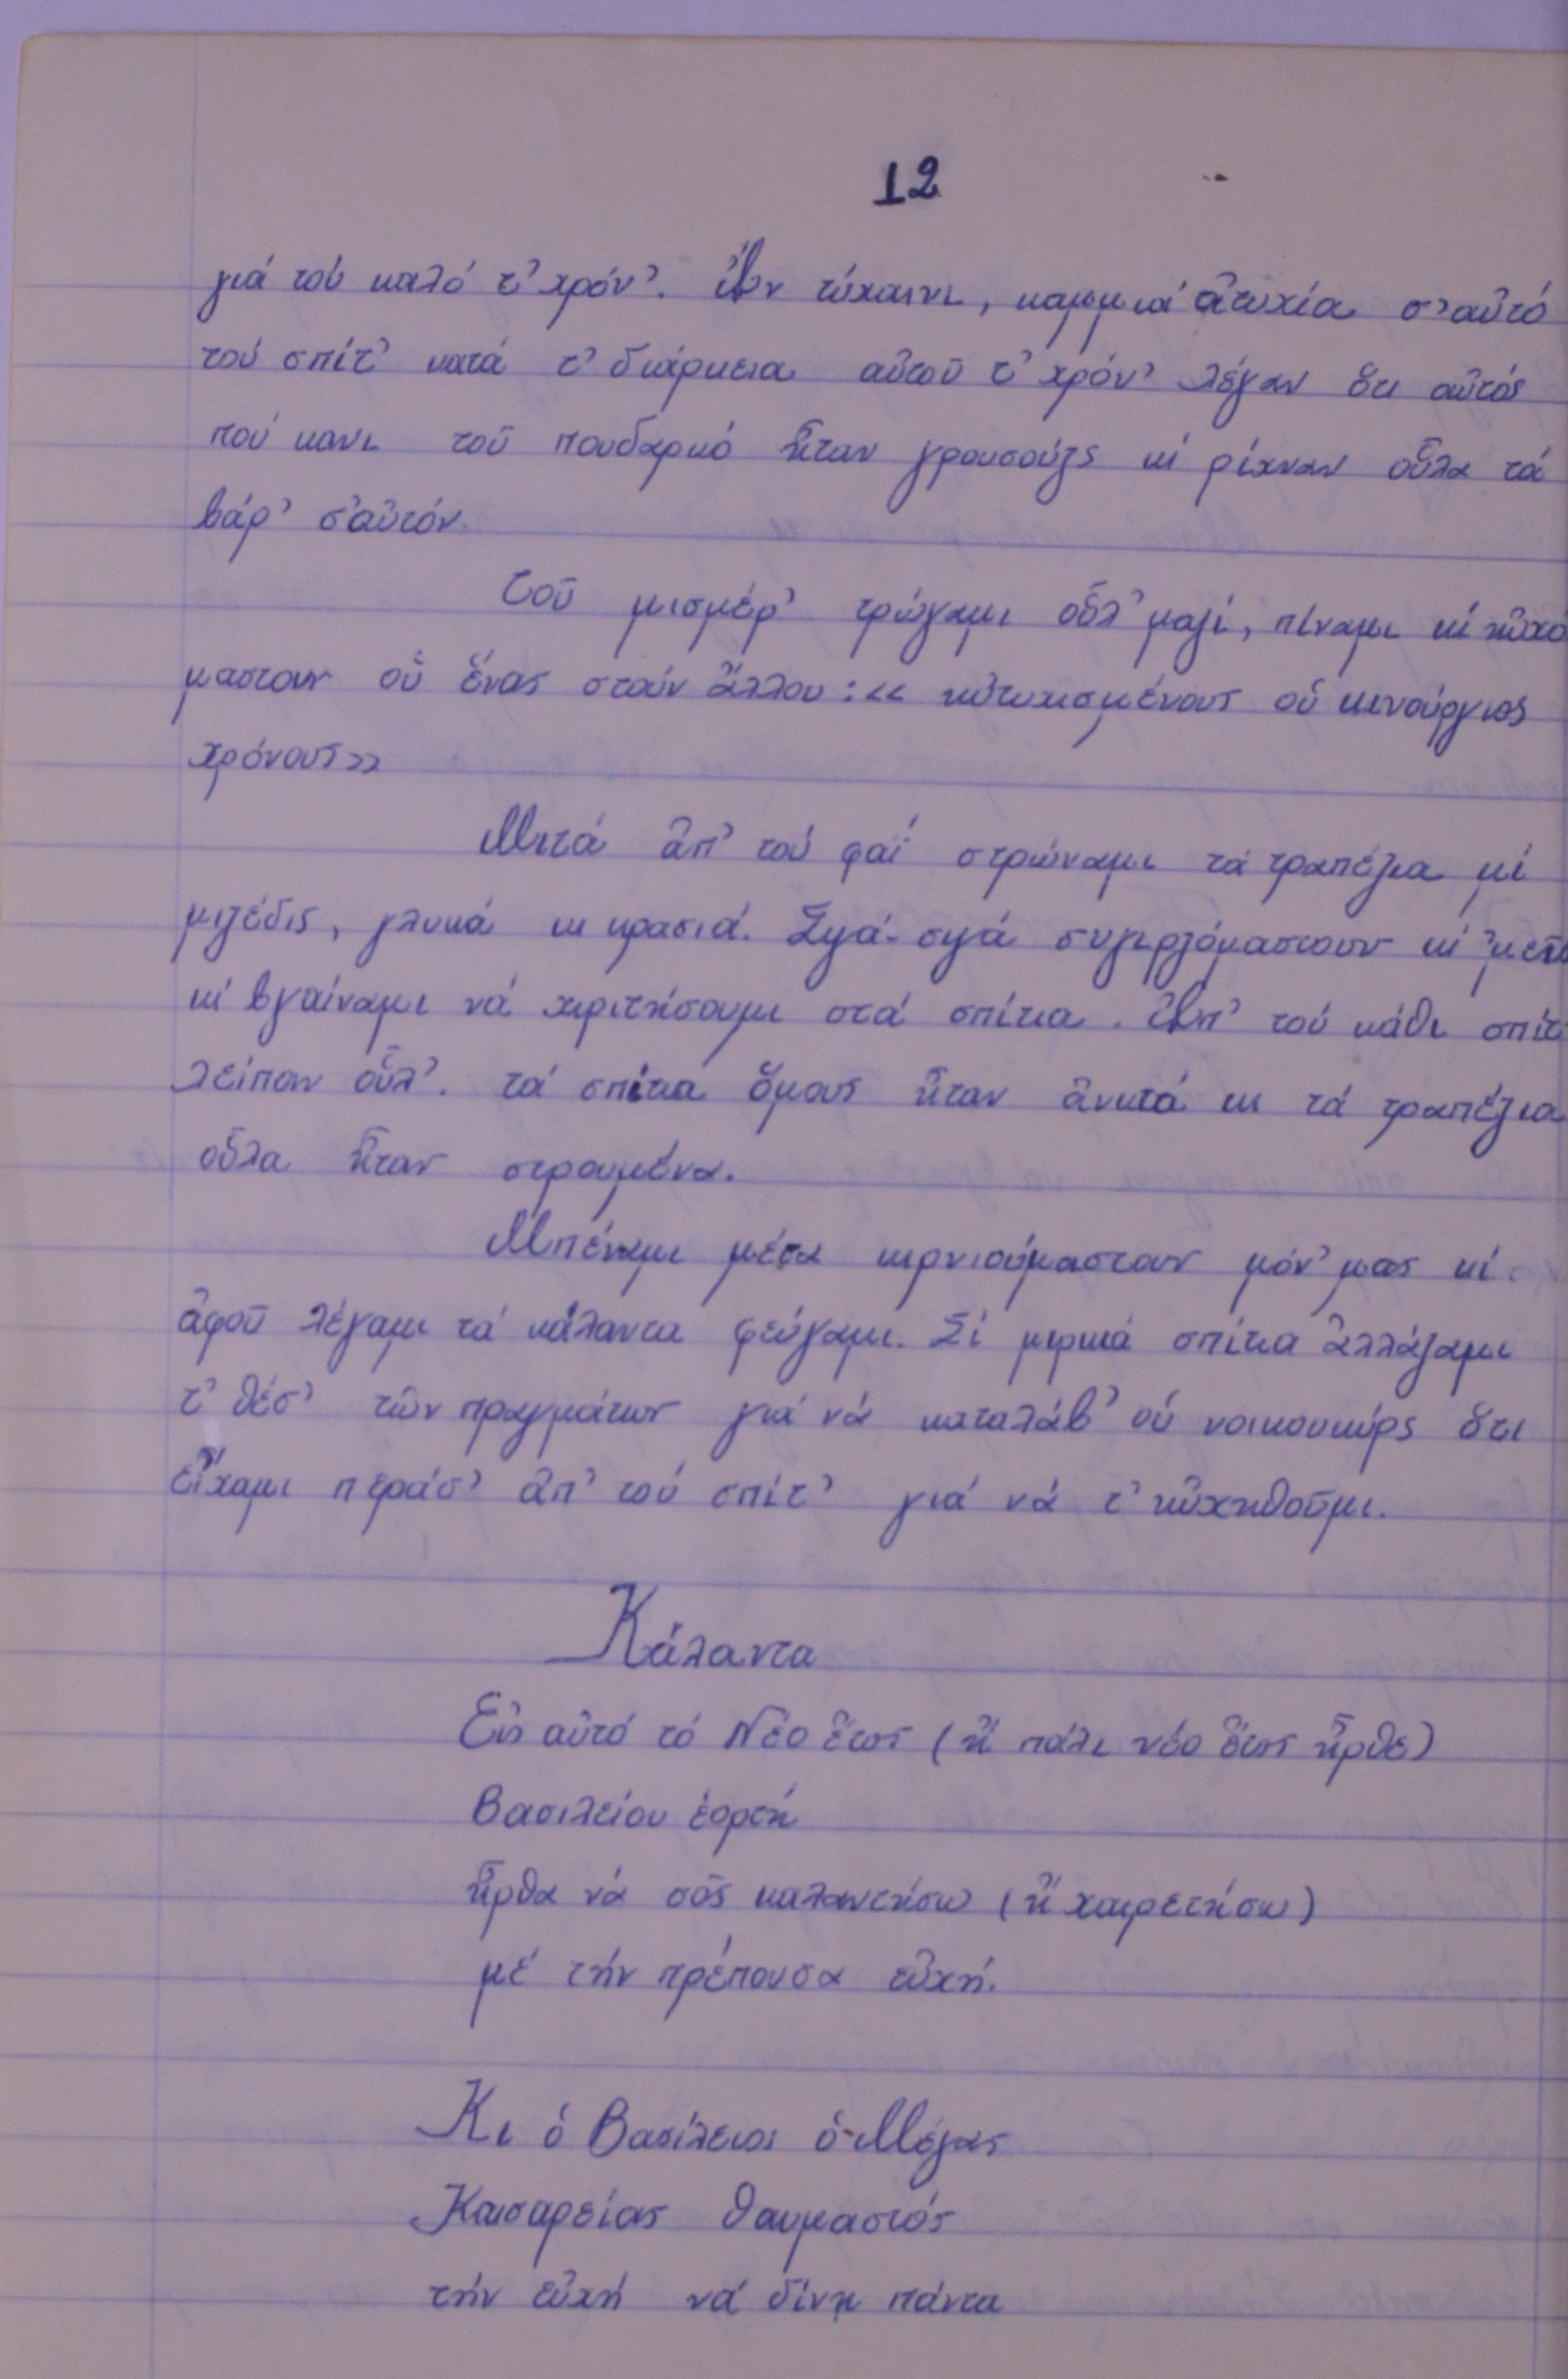 12
γιά τού καλό τ' χρόν'. Ἄν τύχαινι, καμμιά ἀτυχία σ' αὐτό
τού σπίτ' κατά τ' διάρκεια αὐτοῦ τ' χρόν' λέγαν ὅτι αὐτός
πού κανι τοῦ πουδαρκό ἦταν γρουσούζς κί ρίχναν οὗλα τά
βάρ' σ'αὐτόν.
Τοῦ μισμέρ' τρώγαμι οὗλ' μαζί, πίναμι κί ηὐχό
μασταν οὑ ἕνας στούν ἄλλου: «ηὐτυχισμένους οὑ κινούργιος
χρόνους»
Μιτά ἀπ' τού φαΐ στρώναμι τά τραπέζια μί
μιζέδις, γλυκά κι κρασιά. Σιγά-σιγά συγιρζόμαστουν κί 'μεῖς
κί βγαίναμι νά χιριτήσουμι στά σπίτια. Ἀπ' τού κάθι σπίτ'
λείπαν οὗλ'. τά σπίτια ὅμους ἦταν ἀνιτά κι τά τραπέζια
οὗλα ἦταν στρουμένα.
Μπέναμι μέσα κιρνιούμασταν μόν' μας κί
ἀφοῦ λέγαμι τά κάλαντα φεύγαμι. Σί μιρικά σπίτια ἀλλάζαμι
τ' θέσ' τῶν πραγμάτων γιά νά καταλάβ' οὑ νοικουκύρς ὅτι
εἴχαμι περάσ' ἀπ' τού σπίτ' γιά νά τ' ηὐχηθοῦμι.
Κάλαντα
Εἰς αὐτό τό Νέο ἔτος (ἤ πάλι νέο ἔτος ἦρθε)
Βασιλείου ἑορτή
ἦρθα νά σᾶς καλαντήσω (ἤ χαιρετήσω)
μέ τήν πρέπουσα εὐχή.
Κι ὁ Βασίλειος ὁ Μέγας
Καισαρείας θαυμαστός
τήν εὐχή νά δίνη πάντα